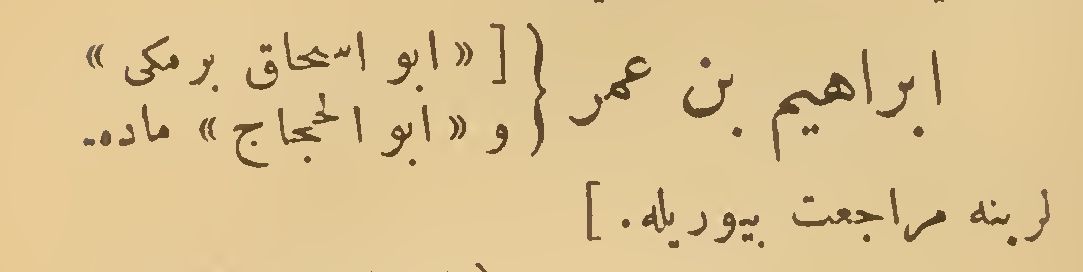 ابراهيم بن عمر } [ « ابو اسحاق برمكى »
و « ابو الحجاج » ماده‌-
لرينه مراجعت بيوريله . ]